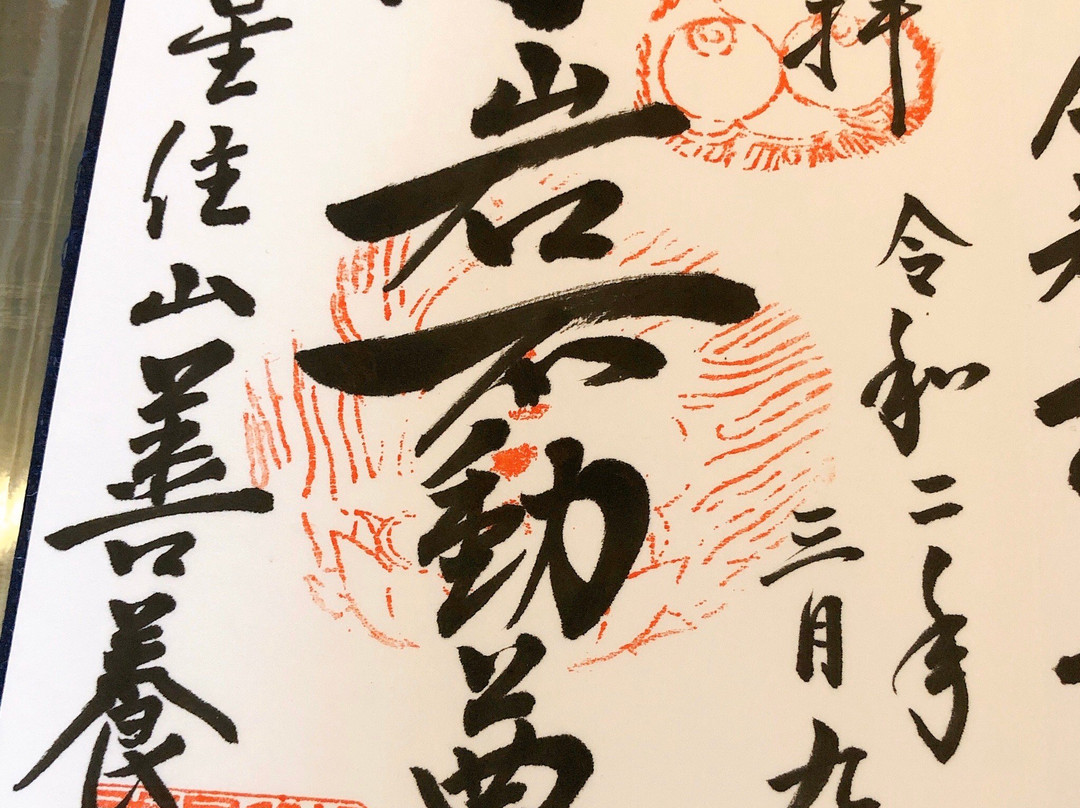 拝
令和二年
三月九
岩不動尊
星住山善養